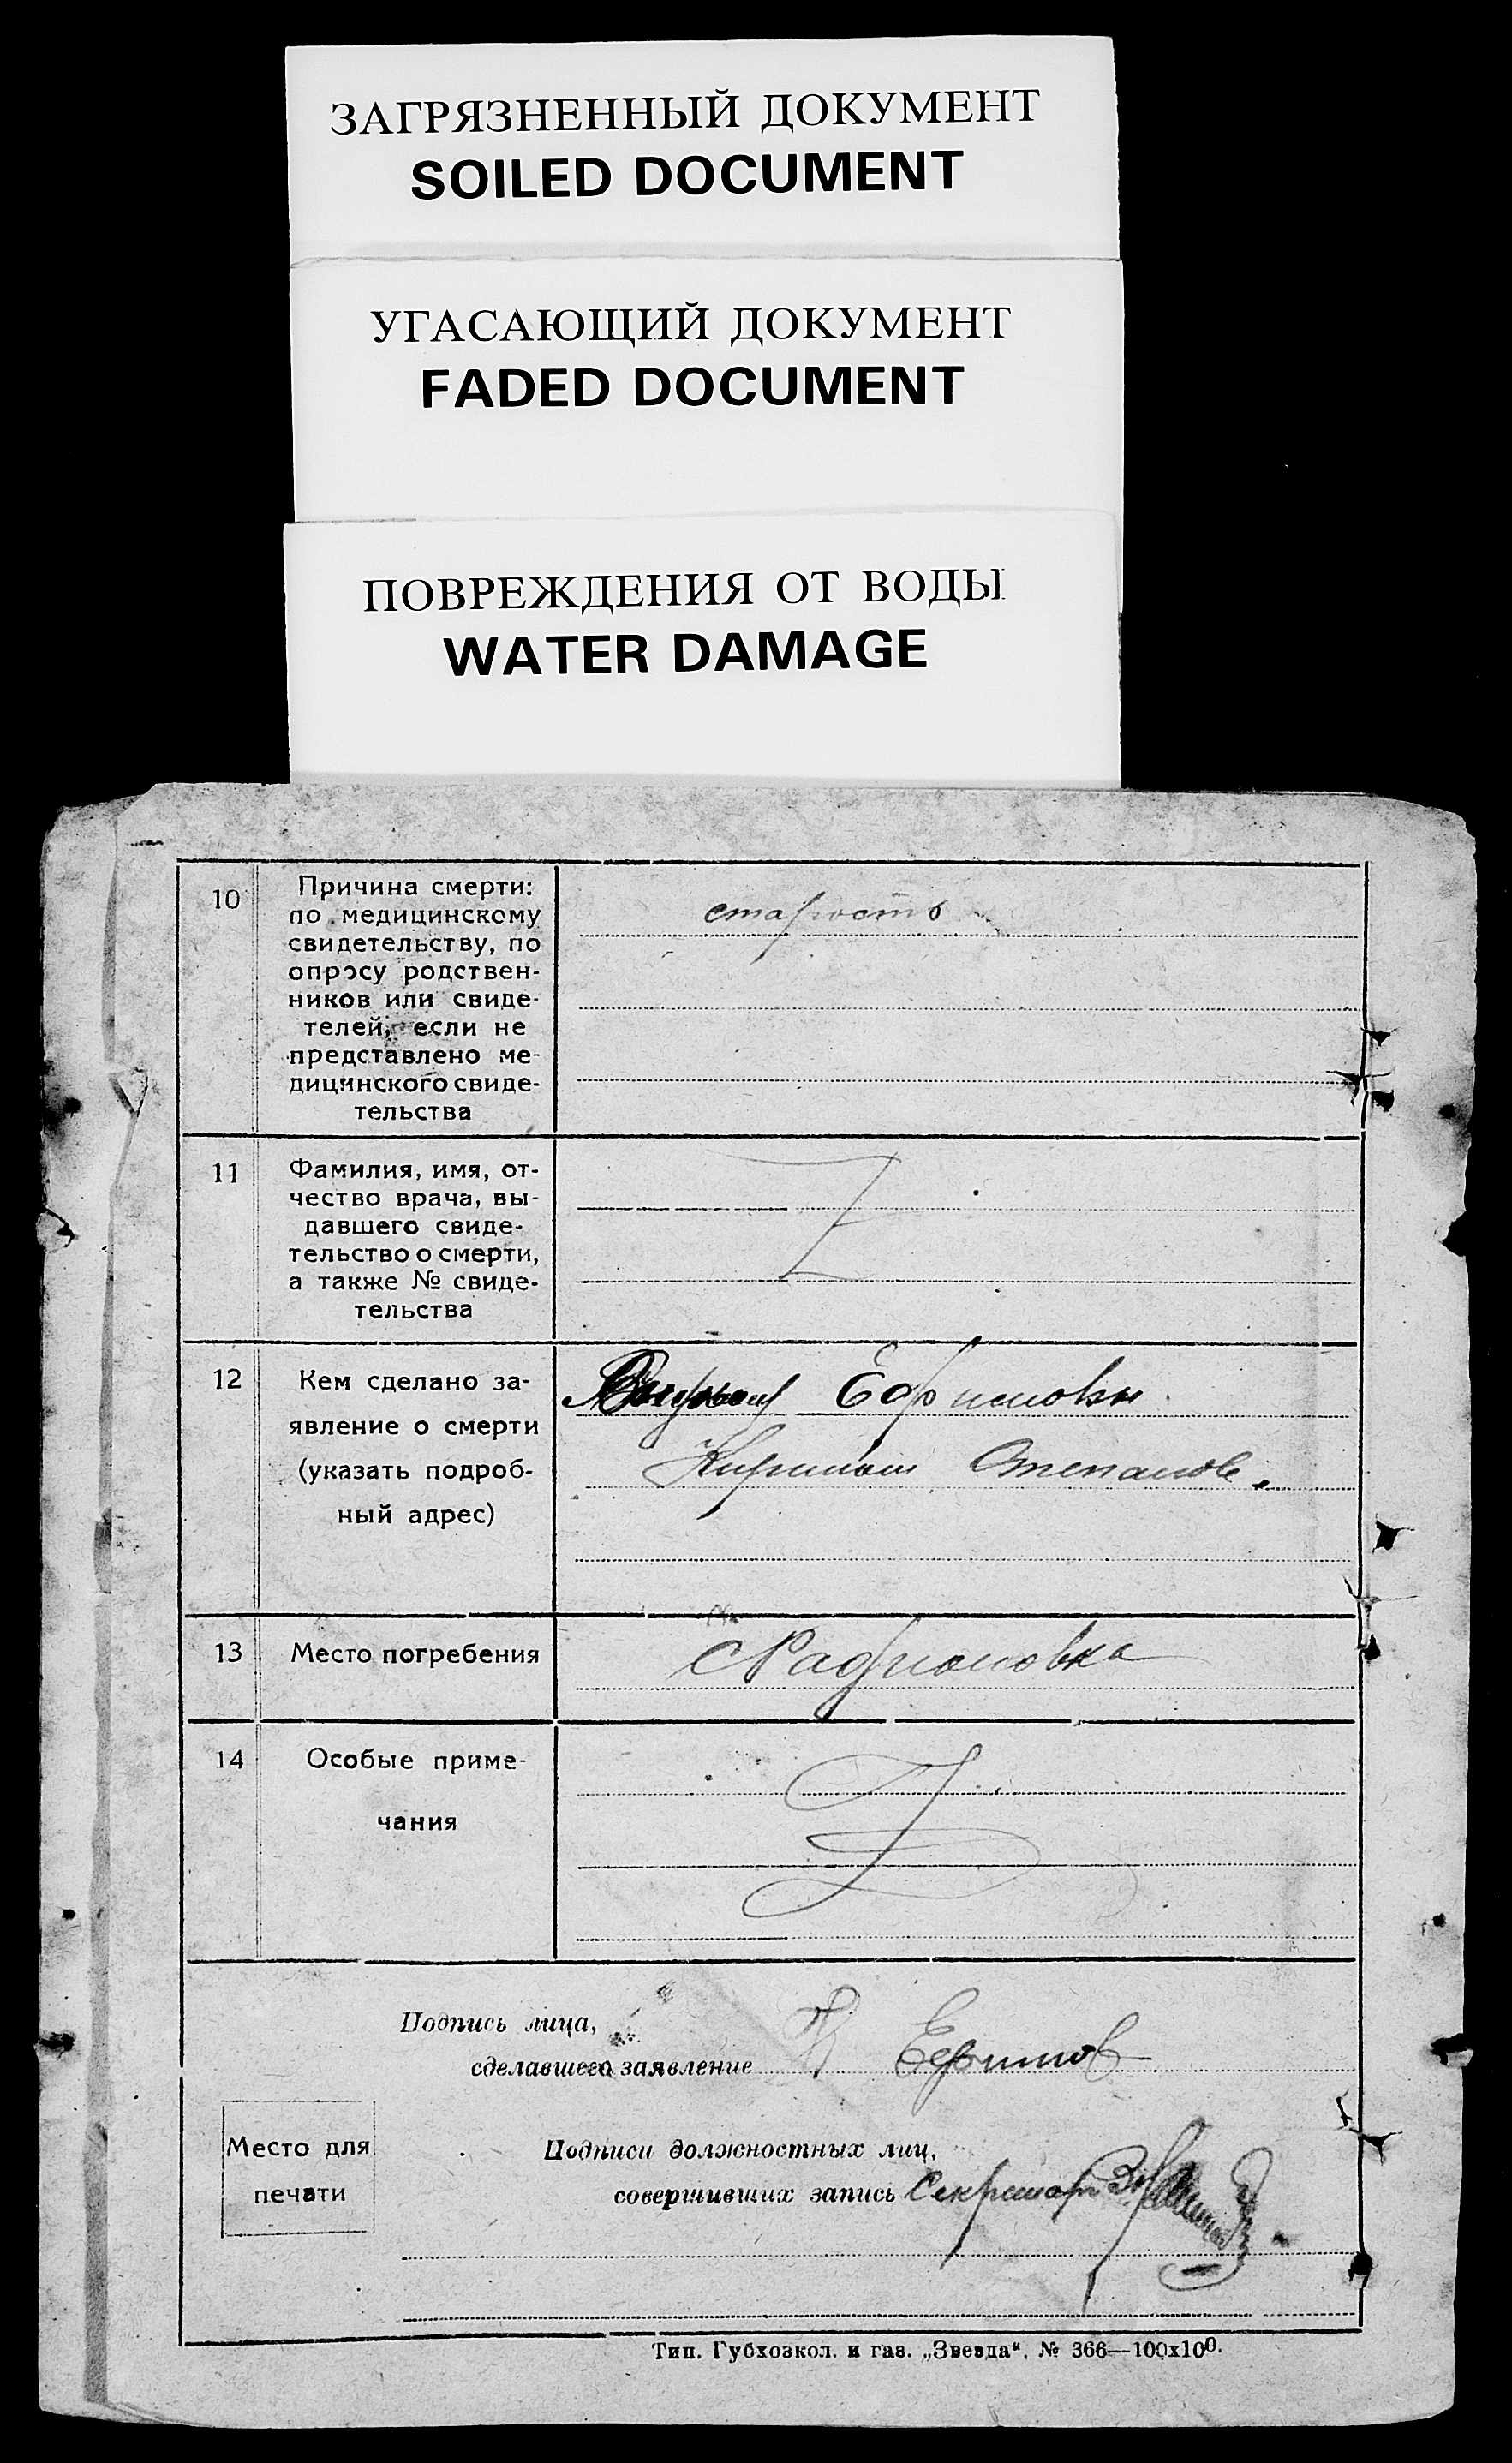 ЗАГРЯЗНЕННЫЙ ДОКУМЕНТ
SOILED DOCUMENT
УГАСАЮЩИЙ ДОКУМЕНТ
FADED DOCUMENT
ПОВРЕЖДЕНИЯ ОТ ВОДЫ
WATER DAMAGE
10
Причина смерти:
по медицинскому
свидетельству, по
опросу родствен-
ников или свиде-
телей, если не
представлено ме-
дицинского свиде-
тельства
старость
11
Фамилия, имя, от-
чество врача, вы-
давшего свиде-
тельство о смерти,
а также № свиде-
тельства
12
Кем сделано за-
явление о смерти
(указать подроб-
ный адрес)
Ефимовы
Степанов.
13
Место погребения
14
Особые приме-
чания
Подпись лица,
сделавшего заявление Ефимов
Место для
печати
Подписи должностных лиц,
совершивших запись Секретарь
Тип. Губхозкол. и газ. „Звезда“. № 366—100х100.